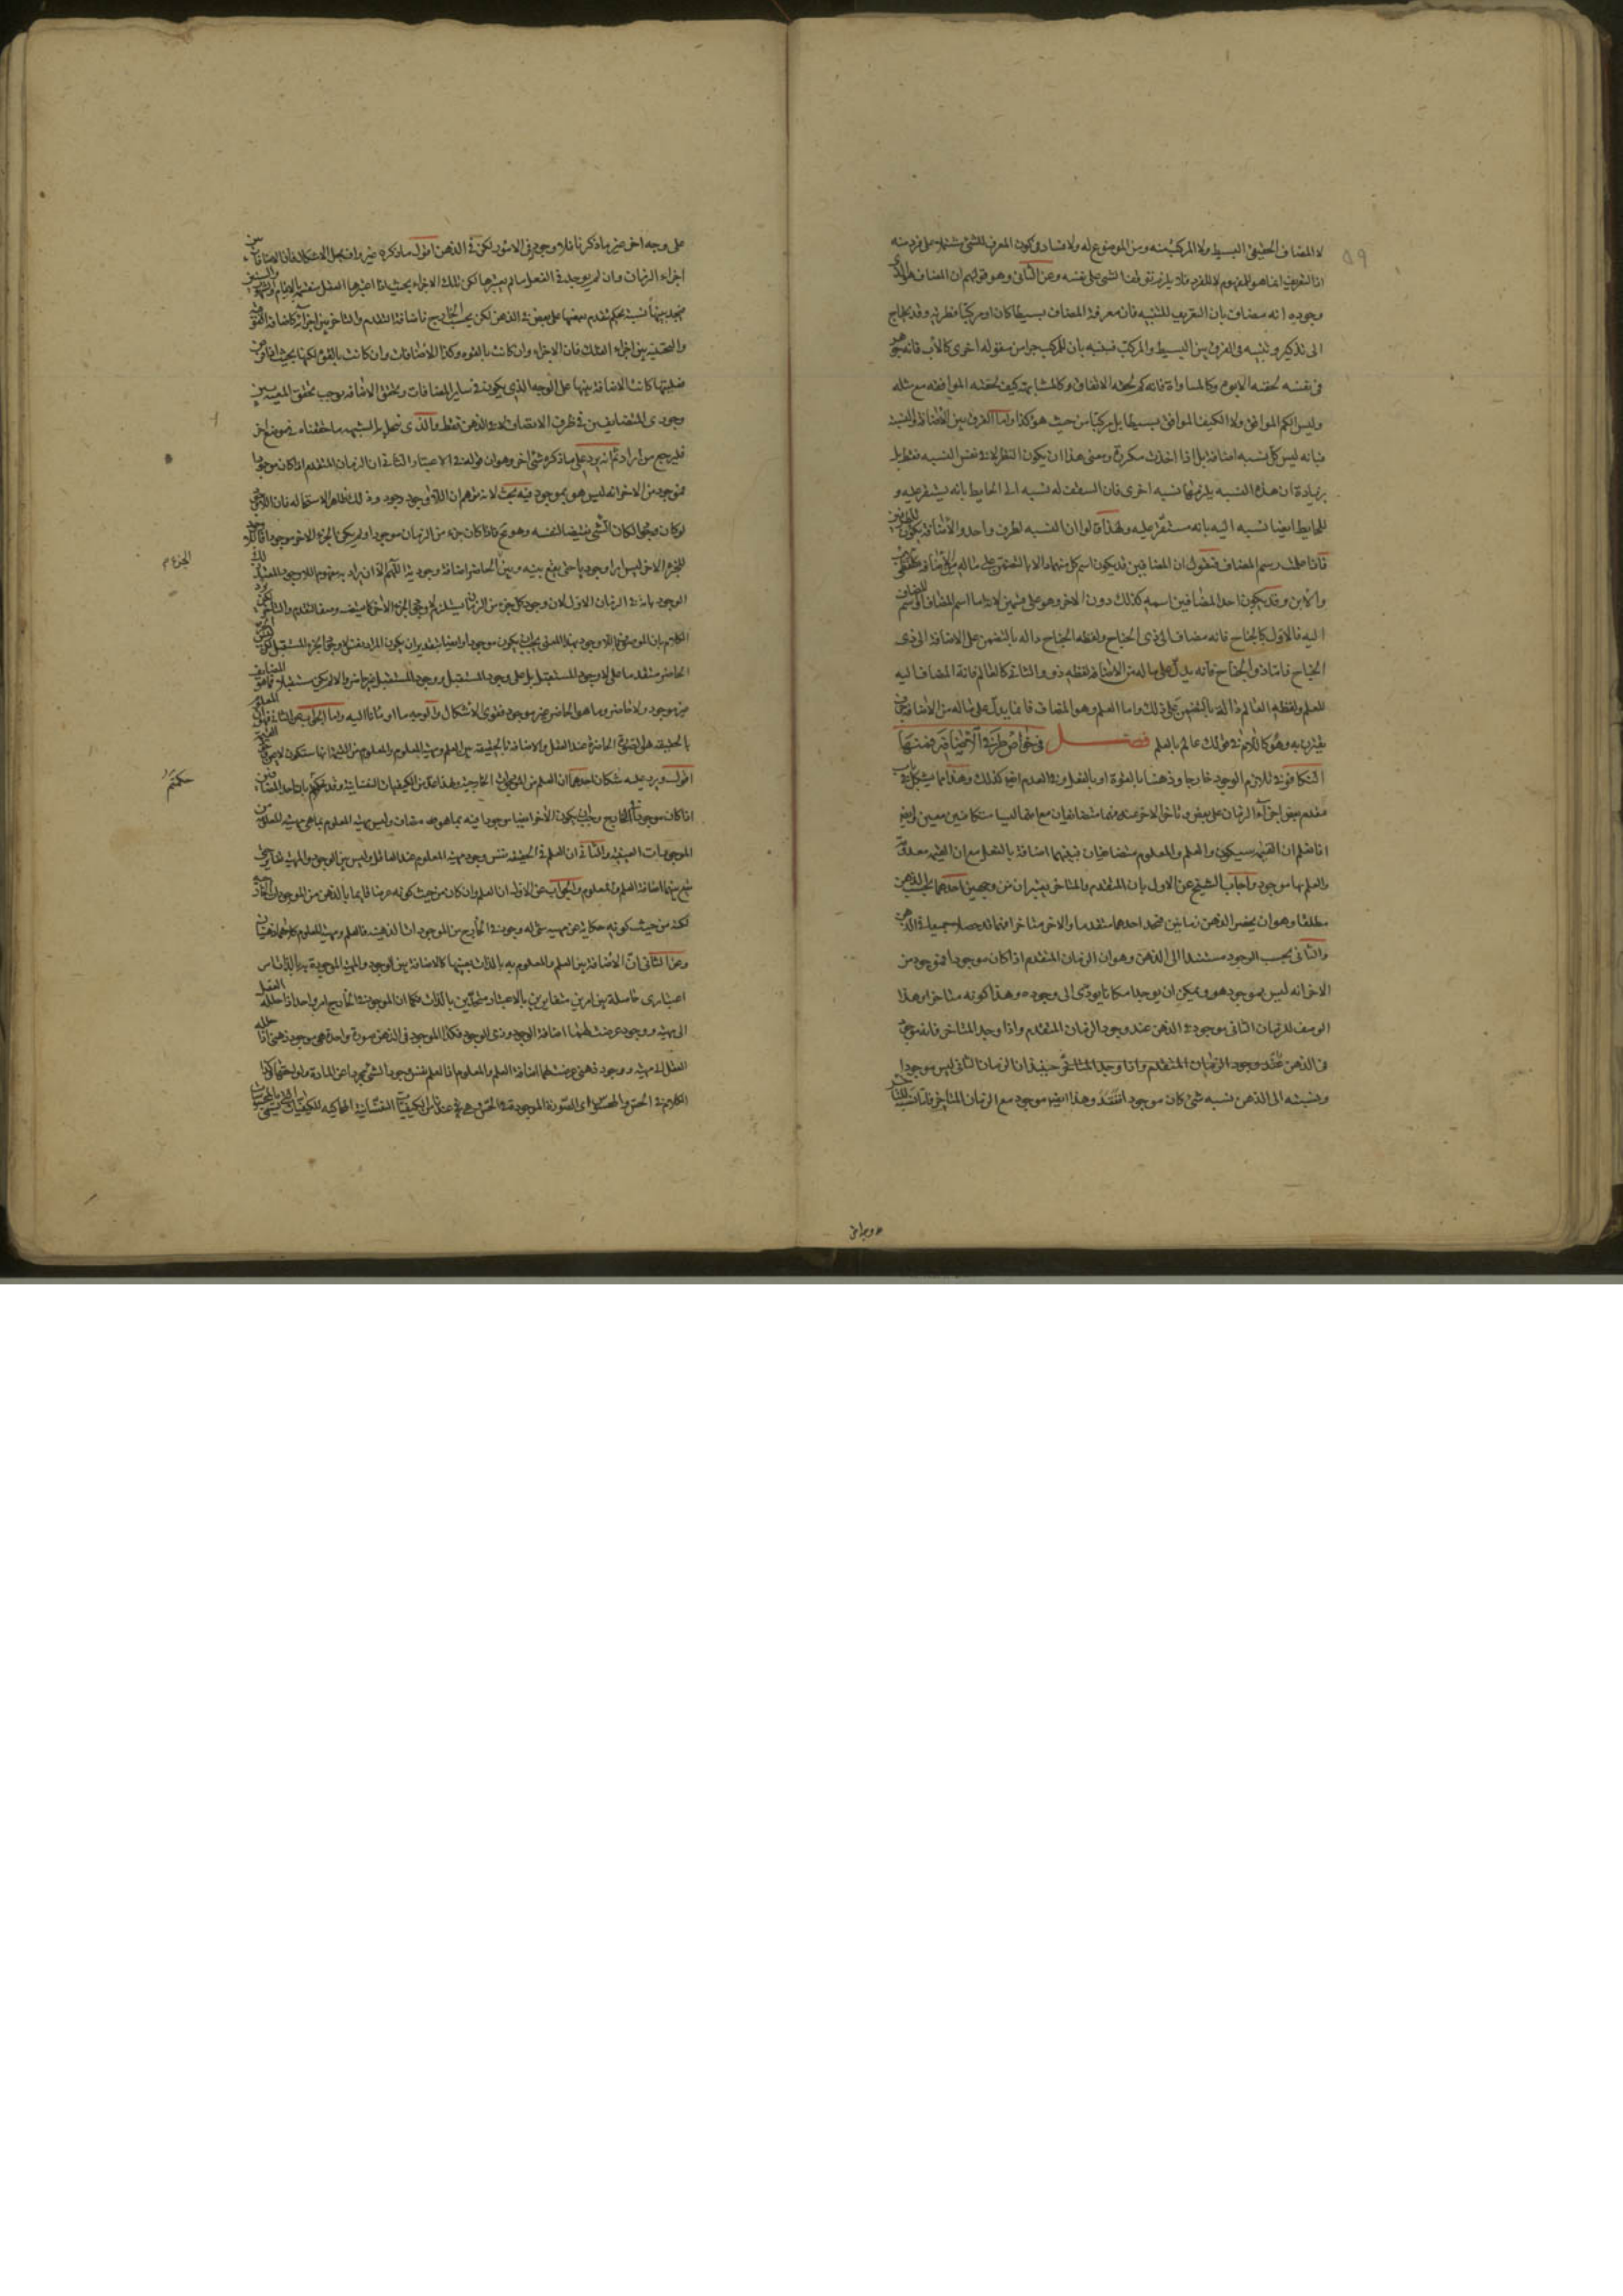 لا المضاف الحقيقى البسيط ولا المركب منه ومن الموضوع له ولا فساد فى كون المعرف للشئ مشتملا على فرد منه
اذا التعريف انما هو للمفهوم لا للفرد فلا يلزم توقف الشئ على نفسه وعن الثانى وهو قولهم ان المضاف هو الذى
وجوده انه مضاف بان التعريف للتنبيه فان معرفة المضاف بسيطا كان او مركبا فطريه وقد يحتاج
الى تذكير وتنبيه فى الفرق بين البسيط والمركب فينبه بان المركب جزء من مقوله اخرى كالأب فانه جوهر
فى نفسه لحقه الابوه وكالمساواة فانه كم لحقه الاتفاق وكالمشابهه كيف لحقته الموافقه مع مثله
وليس الكم الموافق ولا الكيف الموافق بسيطا بل مركبا من حيث هو كذا واما الفرق بين الاضافة والنسبة
فبانه ليس كل نسبه اضافة بل اذا اخذت مكررة ومعنى هذا ان يكون النظر لا فى نفس النسبه فقط بل
بزيادة ان هذه النسبه يلزمها نسبه اخرى فان السقف له نسبه الى الحايط بانه يستقر عليه و
للحايط ايضا نسبه اليه بانه مستقر عليه ولهذا قالوا ان النسبه لطرف واحد والاضافة يكون للطرفين
فاذا علمت رسم المضاف فنقول ان المضافين قد يكون اسم كل منهما دالا بالتضمن على ماله من الاضافه كالاب
والابن وقد يكون احد المضافين اسمه كذلك دون الاخر وهو على قسمين لانه اما اسم المضاف او اسم المضاف
اليه فالاول كالجناح فانه مضاف الى ذى الجناح ولفظه الجناح داله بالتضمن على الاضافة الى ذى
الجناح فاما ذو الجناح فانه يدل على ماله من الاضافه لفظه ذو والثانى كالعالم فانه المضاف اليه
للعلم ولفظه العالم دالة بالتضمن على ذلك واما العلم وهو المضاف فانما يدل على ماله من الاضافه
يقترن به وهو كاللام فى قولك عالم بالعلم فصل فى خواص طرفى الاضافة فمنها
التكافؤ فى تلازم الوجود خارجا وذهنا بالقوة او بالفعل وفى العدم ايضا كذلك وهذا مما يشكل فى باب
تقدم بعض اجزاء الزمان على بعض وتاخر الاخر عنه فهما متضايفان مع انهما ليسا متكافئين معيين وايضا
انا نعلم ان القيمه سيكون والعلم والمعلوم متضايفان فبينهما اضافة بالفعل مع ان القيمه معدومة
والعلم بها موجود واجاب الشيخ عن الاول بان المتقدم والمتاخر يعتبران من وجهين احدهما بحسب الذهن
مطلقا وهو ان يحضر الذهن زمانين فيجد احدهما متقدما والاخر متاخرا فهما قد حصلا جميعا فى الذهن
والثانى بحسب الوجود مستندا الى الذهن وهو ان الزمان المتقدم اذا كان موجودا فموجود من
الاخر انه ليس بموجود هو ويمكن ان يوجد امكانا يؤدى الى وجوده وهذا كونه متاخرا وهذا
الوصف للزمان الثانى موجود فى الذهن عند وجود الزمان المتقدم واذا وجد المتاخر فانه موجود
فى الذهن عند وجود الزمان المتقدم واذا وجد المتاخر حينئذ ان الزمان الثانى ليس موجودا
ونسبته الى الذهن نسبه شئ كان موجودا ففقد وهذا ايضا موجود مع الزمان المتاخر فاما نسبه المتاخر
على وجه اخر غير ما ذكرنا فلا وجود له فى الامور لكن فى الذهن اقول ما ذكره غير واف بحل الاشكال فان الاضافة بين
اجزاء الزمان وان لم يوجد فى الفعل ما لم يعتبرها لكن تلك الاجزاء بحيث اذا اعتبرها العقل
يجد بينها نسبة بحكم بتقدم بعضها على بعض فى الذهن لكن بحسب الخارج فاضافة التقدم والتاخر بين اجزائه كاضافة الفوقيه
والتحتيه بين اجزاء الفلك فان الاجزاء وان كانت بالقوه وكذا الاضافات وان كانت بالقوة لكنها بحيث اذا فرض
فعليتها كانت الاضافة بينها على الوجه الذى يكون فى ساير المضافات وتحقق الاضافه يوجب تحقق المعيه بين
وجودى المتضايفين فى ظرف الاتصاف لا فى الذهن فقط والذى ينحل به الشبهه ما حققناه فى موضع اخر
فليرجع من اراد ثم انه يرد على ما ذكره شئ اخر وهو ان قوله فى الاعتبار الثانى ان الزمان المتقدم اذا كان موجودا
فموجود من الاخر انه ليس هو بموجود فيه بحث لانه توهم ان اللاوجود وجود وذلك ظاهر الاستحاله فان اللاوجود
لو كان وجودا لكان الشئ نقيضا لنفسه وهو مح فاذا كان جزء من الزمان موجودا ولم يكن الجزء الاخر موجودا
للجزء الاخر ليس امرا وجوديا حتى يقع بينه وبين الحاضر اضافة وجوديه اللهم الا ان يراد به مفهوم اللاوجود المقيد
الكلام بان الموصوف باللاوجود بهذا المعنى يجب ان يكون موجودا وايضا بتقدير ان يكون المراد نفس لا وجود الجزء المستقبل
الحاضر متقدما على لا وجود المستقبل بل على وجود المستقبل ووجود المستقبل غير حاضر والا لم يكن مستقبلا
غير موجود ولا حاضر وما هو الحاضر غير موجود فقوى الاشكال والوجه ما اومانا اليه واما الجواب عن الثانى
بالحقيقه هى الصورة الحاضرة عند العقل والاضافة بالحقيقه بين العلم ومهيه المعلوم والمعلوم من القيمه انها ستكون
اقول ويرد عليه شكان احدهما ان العلم من الموجودات الخارجيه ولهذا عد من الكيفيات النفسانيه وقد حكم بان احد المتضايفين
اذا كان موجودا فى الخارج وجب ان يكون الاخر ايضا موجودا فيه بما هو مضاف وليس مهيه المعلوم بما هى مهيه المعلوم من
الموجودات العينيه والثانى ان العلم فى الحقيقه نفس وجود مهيه المعلوم عند العاقل وليس بين الوجود والمهيه تغاير حتى
يقع بينهما اضافة العلم والمعلوم والجواب عن الاول ان العلم وان كان من حيث كونه عرضا قايما بالذهن من الموجودات الخارجيه
لكنه من حيث كونه حكاية عن مهيه شئ له وجود فى الخارج من الموجودات الذهنيه فالعلم ومهيه المعلوم كلاهما ذهنيان
وعن الثانى ان الاضافة بين العلم والمعلوم به بالذات بعينها كالاضافة بين الوجود والمهيه الموجودة به بالذات امر
اعتبارى حاصلة بين امرين متغايرين بالاعتبار متحدين بالذات فكما ان الموجود فى الخارج امر واحد اذا حلله العقل
الى مهيه ووجود عرضت لهما اضافة الوجود وذى الوجود فكذا الموجود فى الذهن صورة واحدة هى موجود ذهنى اذا حلله
العقل الى مهيه ووجود ذهنى عرضت لهما اضافة العلم والمعلوم اذ العلم نفس وجود الشئ مجردا عن المادة ولواحقها وكذا
الكلام فى الحس والمحسوس اى الصورة الموجودة فى الحس
الجزء م
حكمهم
٥٩